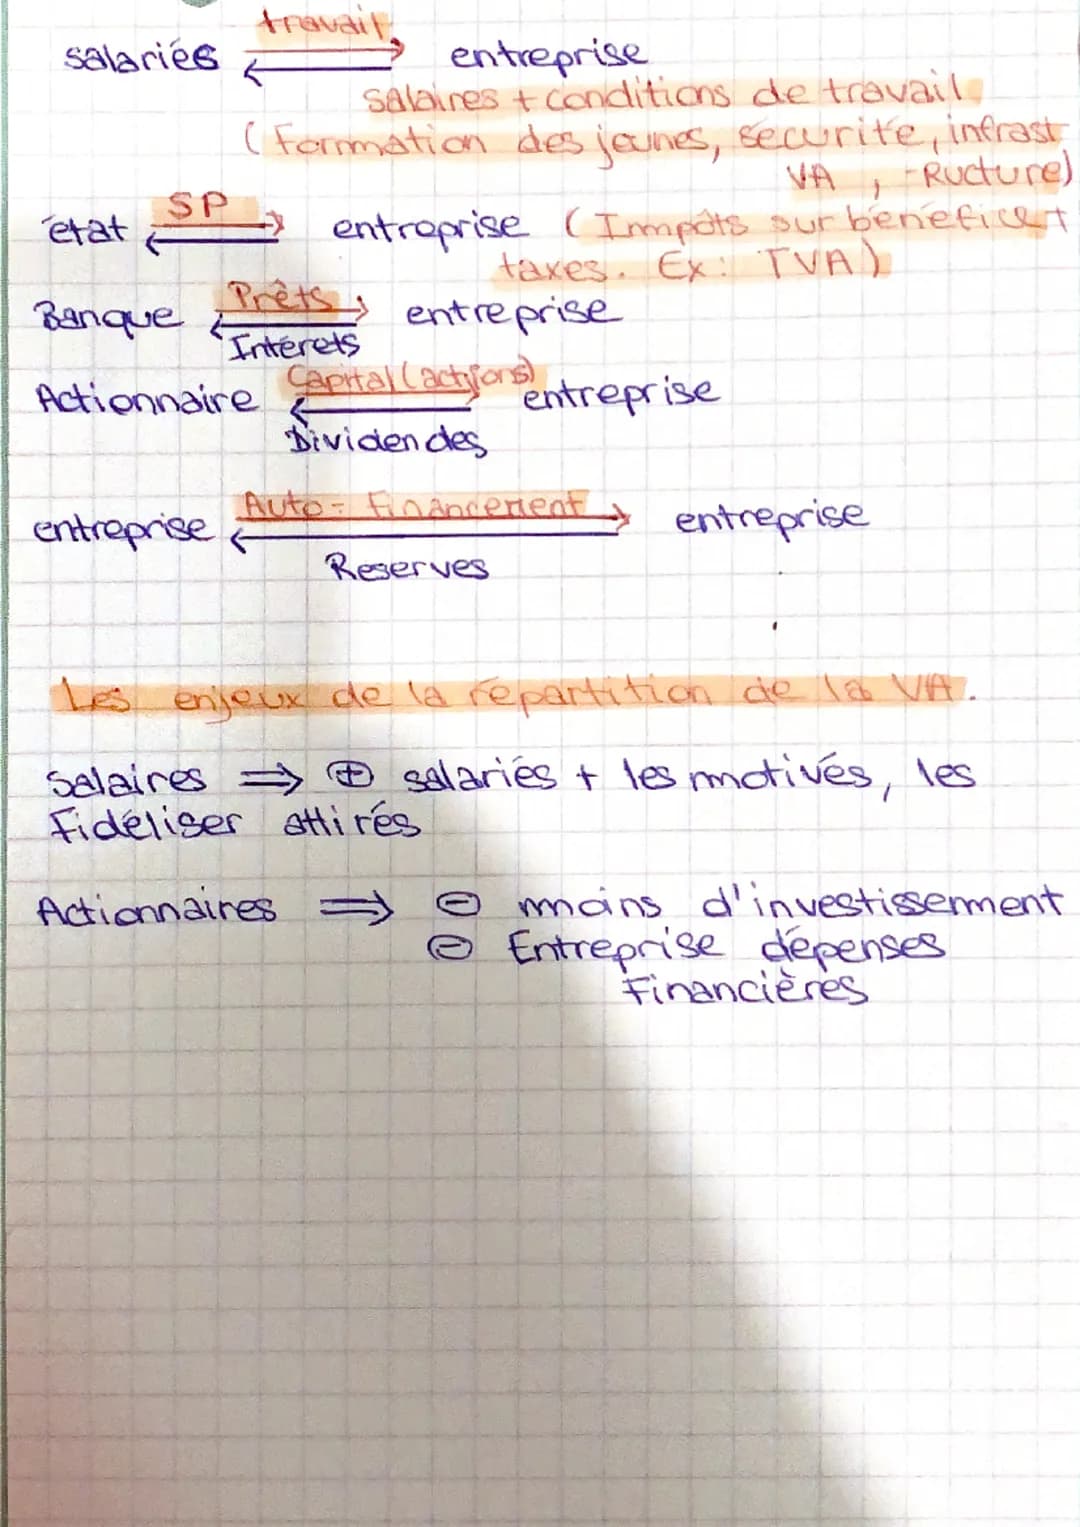 travail
salariés entreprise
salaires + conditions de travail
(Formation des jeunes, sécurité, infrast
VA , -Ructure)
SP
état entreprise (Impôts sur bénéfice +
taxes. Ex: TVA)
Prêts
Banque entreprise
Intérets
Capital (actions)
Actionnaire entreprise
Dividendes
Auto-Financement
entreprise entreprise
Reserves
Les enjeux de la répartition de la VA.
Salaires ⇒ ⊕ salariés + les motivés, les
Fidéliser attirés
Actionnaires ⇒ ⊖ moins d'investissement
⊖ Entreprise dépenses
Financières